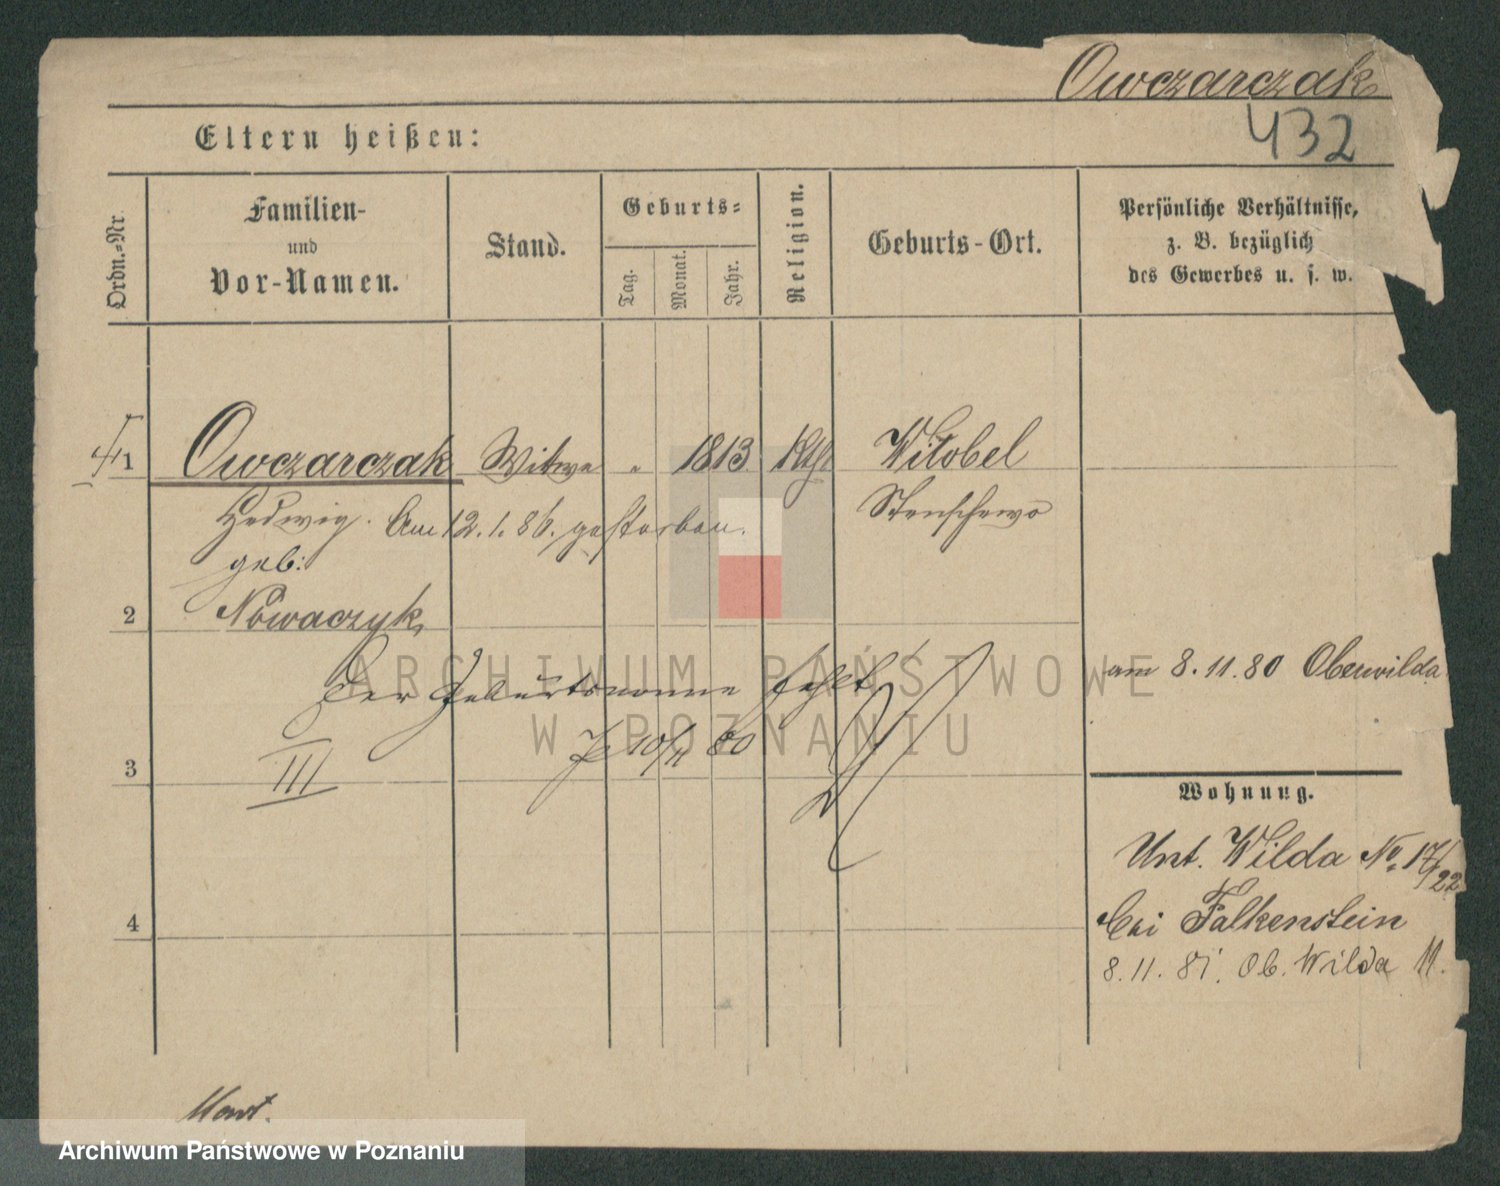 Owczarczak
432
Eltern heißen:
Ordn.-Nr.
Familien-
und
Vor-Namen.
Stand.
Geburts-
Tag.
Monat.
Jahr.
Religion.
Geburts-Ort.
Persönliche Verhältnisse,
z. B. bezüglich
des Gewerbes u. s. w.
1 Owczarczak Witwe " 1813 Kth Witobel
Hedwig. Am 12.1.86. gestorben. Stenschewo
geb:
2 Nowaczyk
am 8.11.80 Oberwilda
Der Geburtsname fehlt
10/11 80
III
3
Wohnung.
Unt. Wilda No. 17/22
bei Falkenstein
4
8.11.81. Ob. Wilda 11.
ARCHIWUM PAŃSTWOWE
W POZNANIU
Archiwum Państwowe w Poznaniu